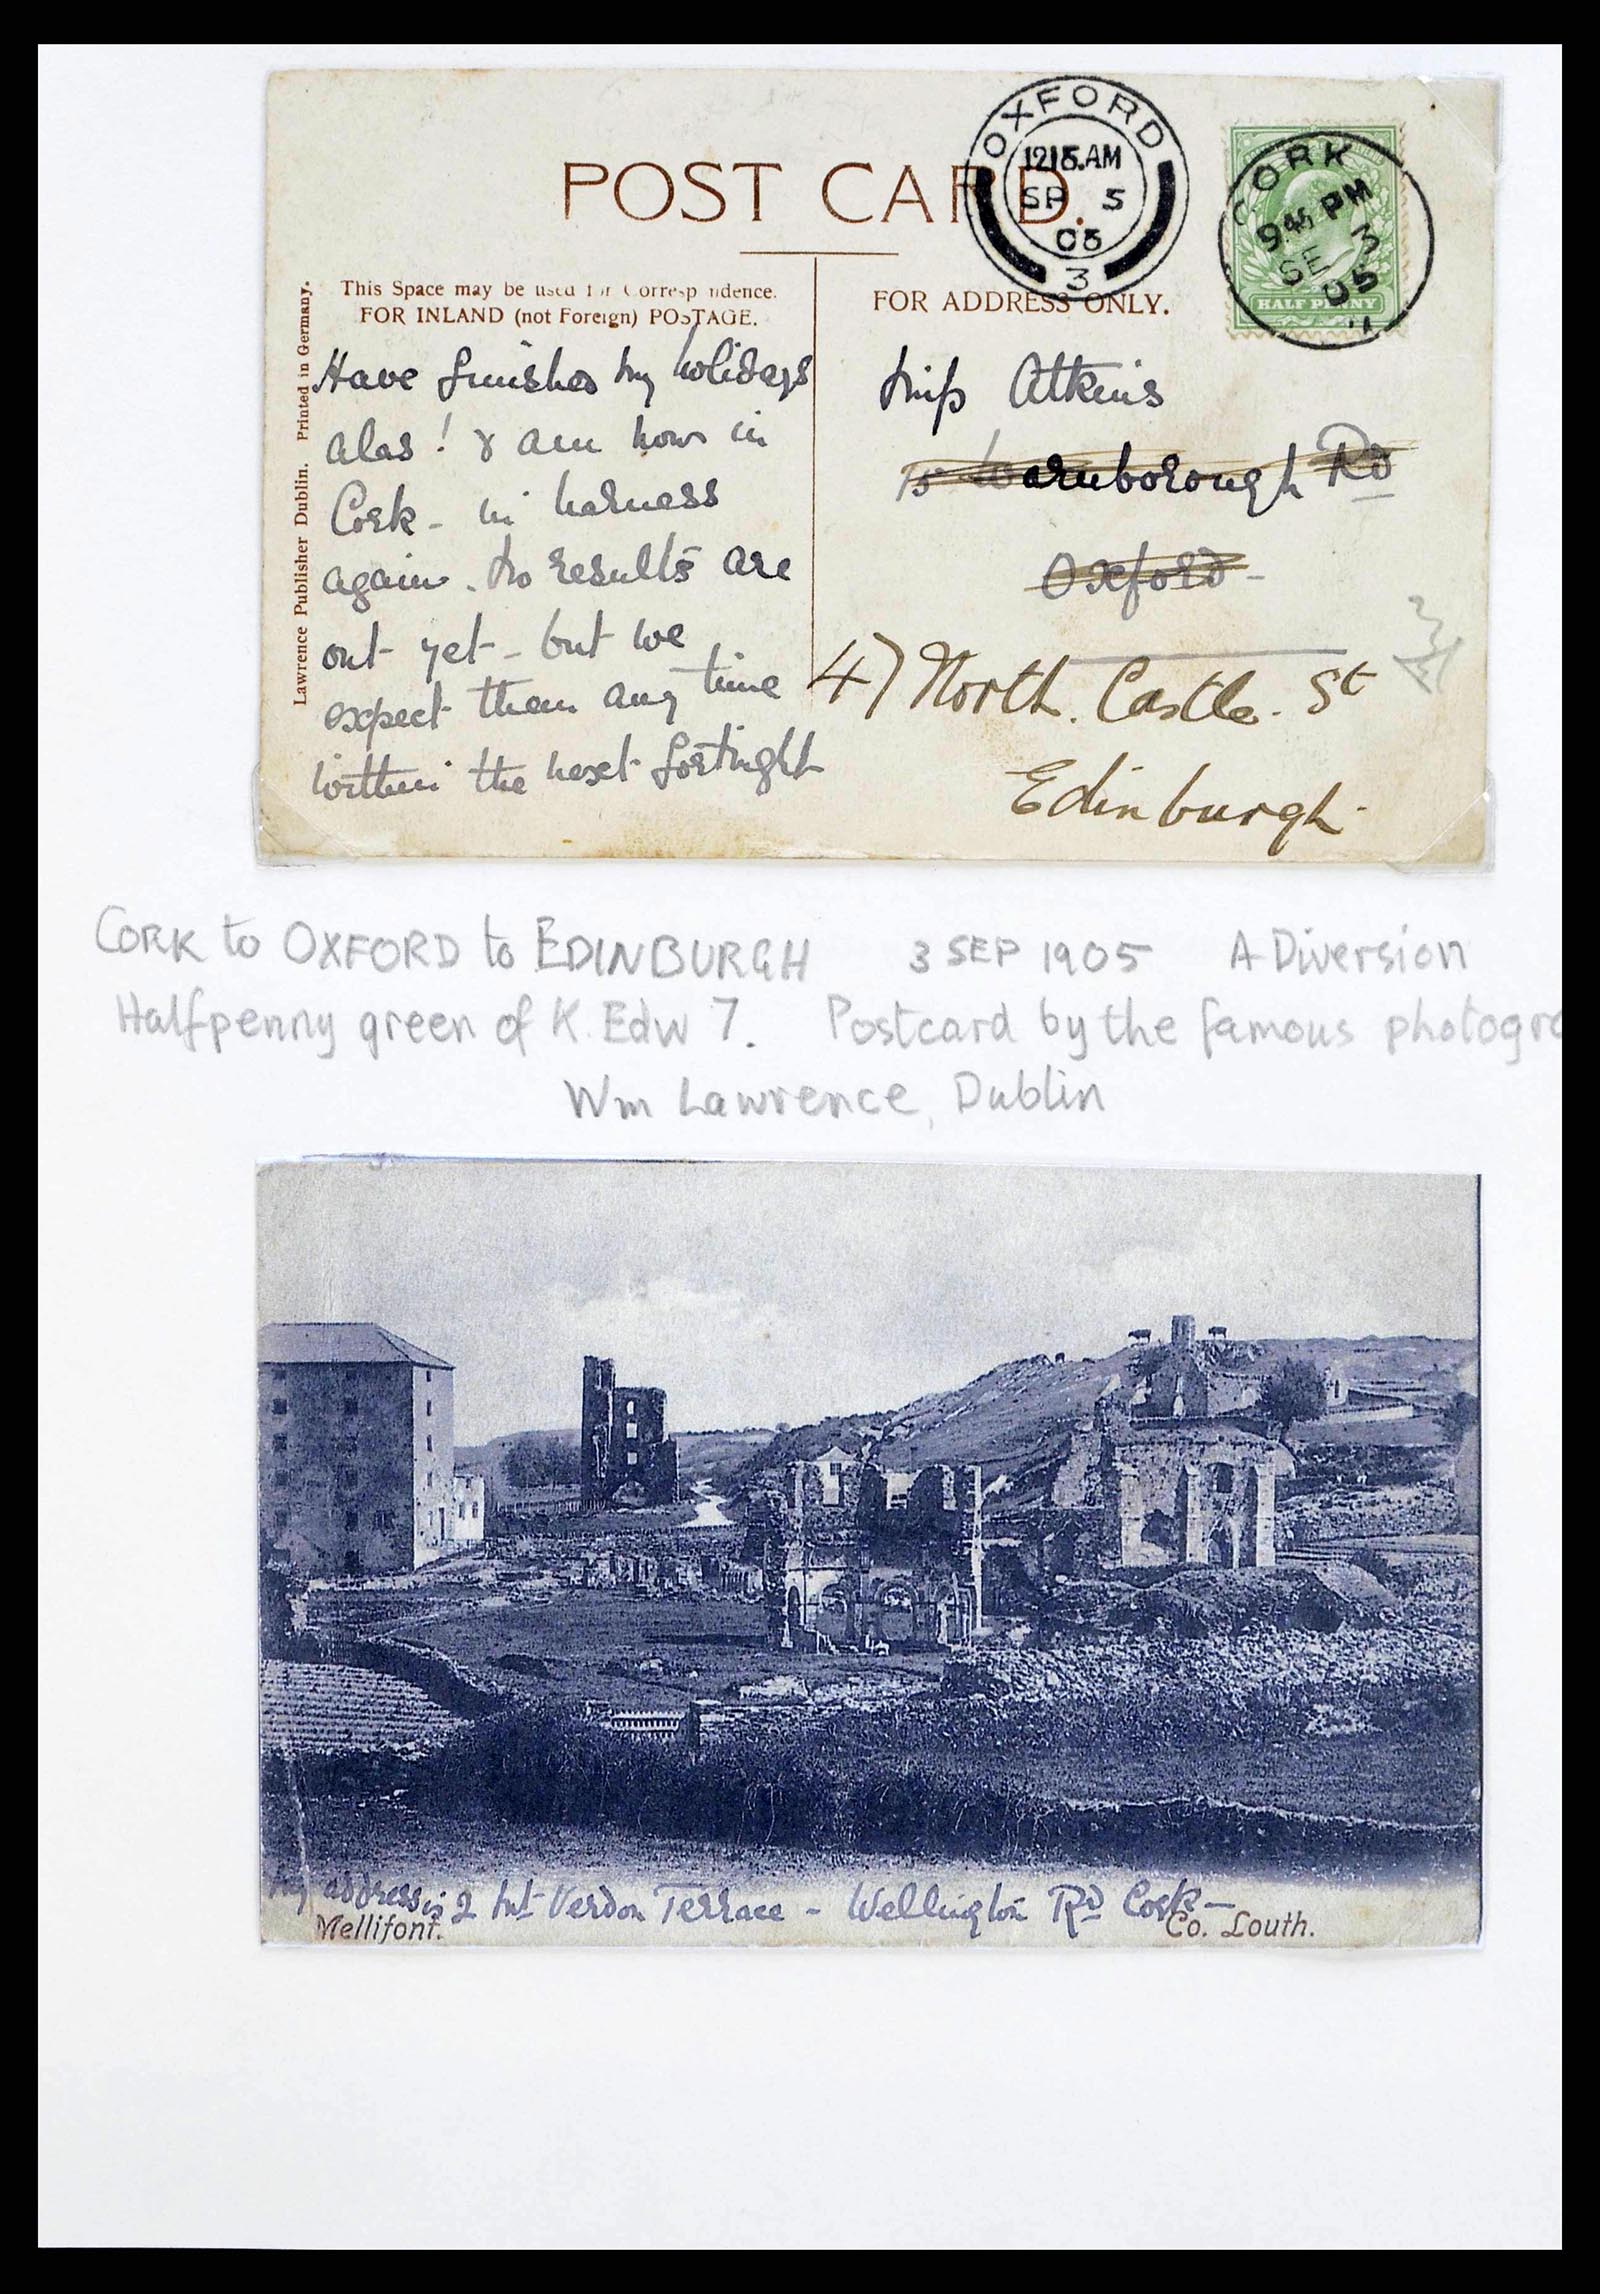 POST CARD.
OXFORD
12 15 AM
SP 5
05
3
CORK
9 45 PM
SE 3
05
HALF PENNY
This Space may be used for Correspondence.
FOR INLAND (not Foreign) POSTAGE.
FOR ADDRESS ONLY.
Lawrence Publisher Dublin. Printed in Germany.
Have finished my holidays
alas! & am now in
Cork - in harness
again. No results are
out yet - but we
expect them any time
within the next fortnight
Miss Atkins
Warnborough Rd
Oxford -
47 North. Castle. St
Edinburgh.
CORK to OXFORD to EDINBURGH 3 SEP 1905 A Diversion
Halfpenny green of K. Edw 7. Postcard by the famous photogra
Wm Lawrence, Dublin
My address is 2 Mt Verdon Terrace - Wellington Rd Cork -
Mellifont. Co. Louth.